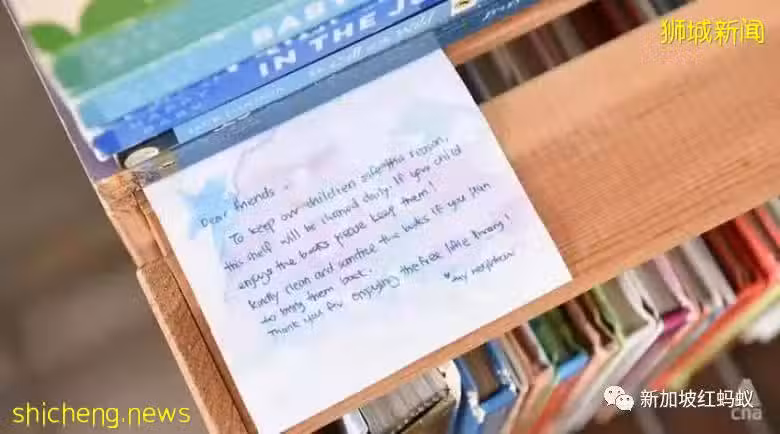 狮城新闻
BABY
IN THE JU
Dear friends,
To keep our children safe this season,
this shelf will be cleaned daily. If your child
enjoys the books please keep them!
Kindly clean and sanitise the books if you plan
to bring them back.
Thank you for enjoying the free little library!
♥ my neighbour
shicheng.news
新加坡红蚂蚁
cna